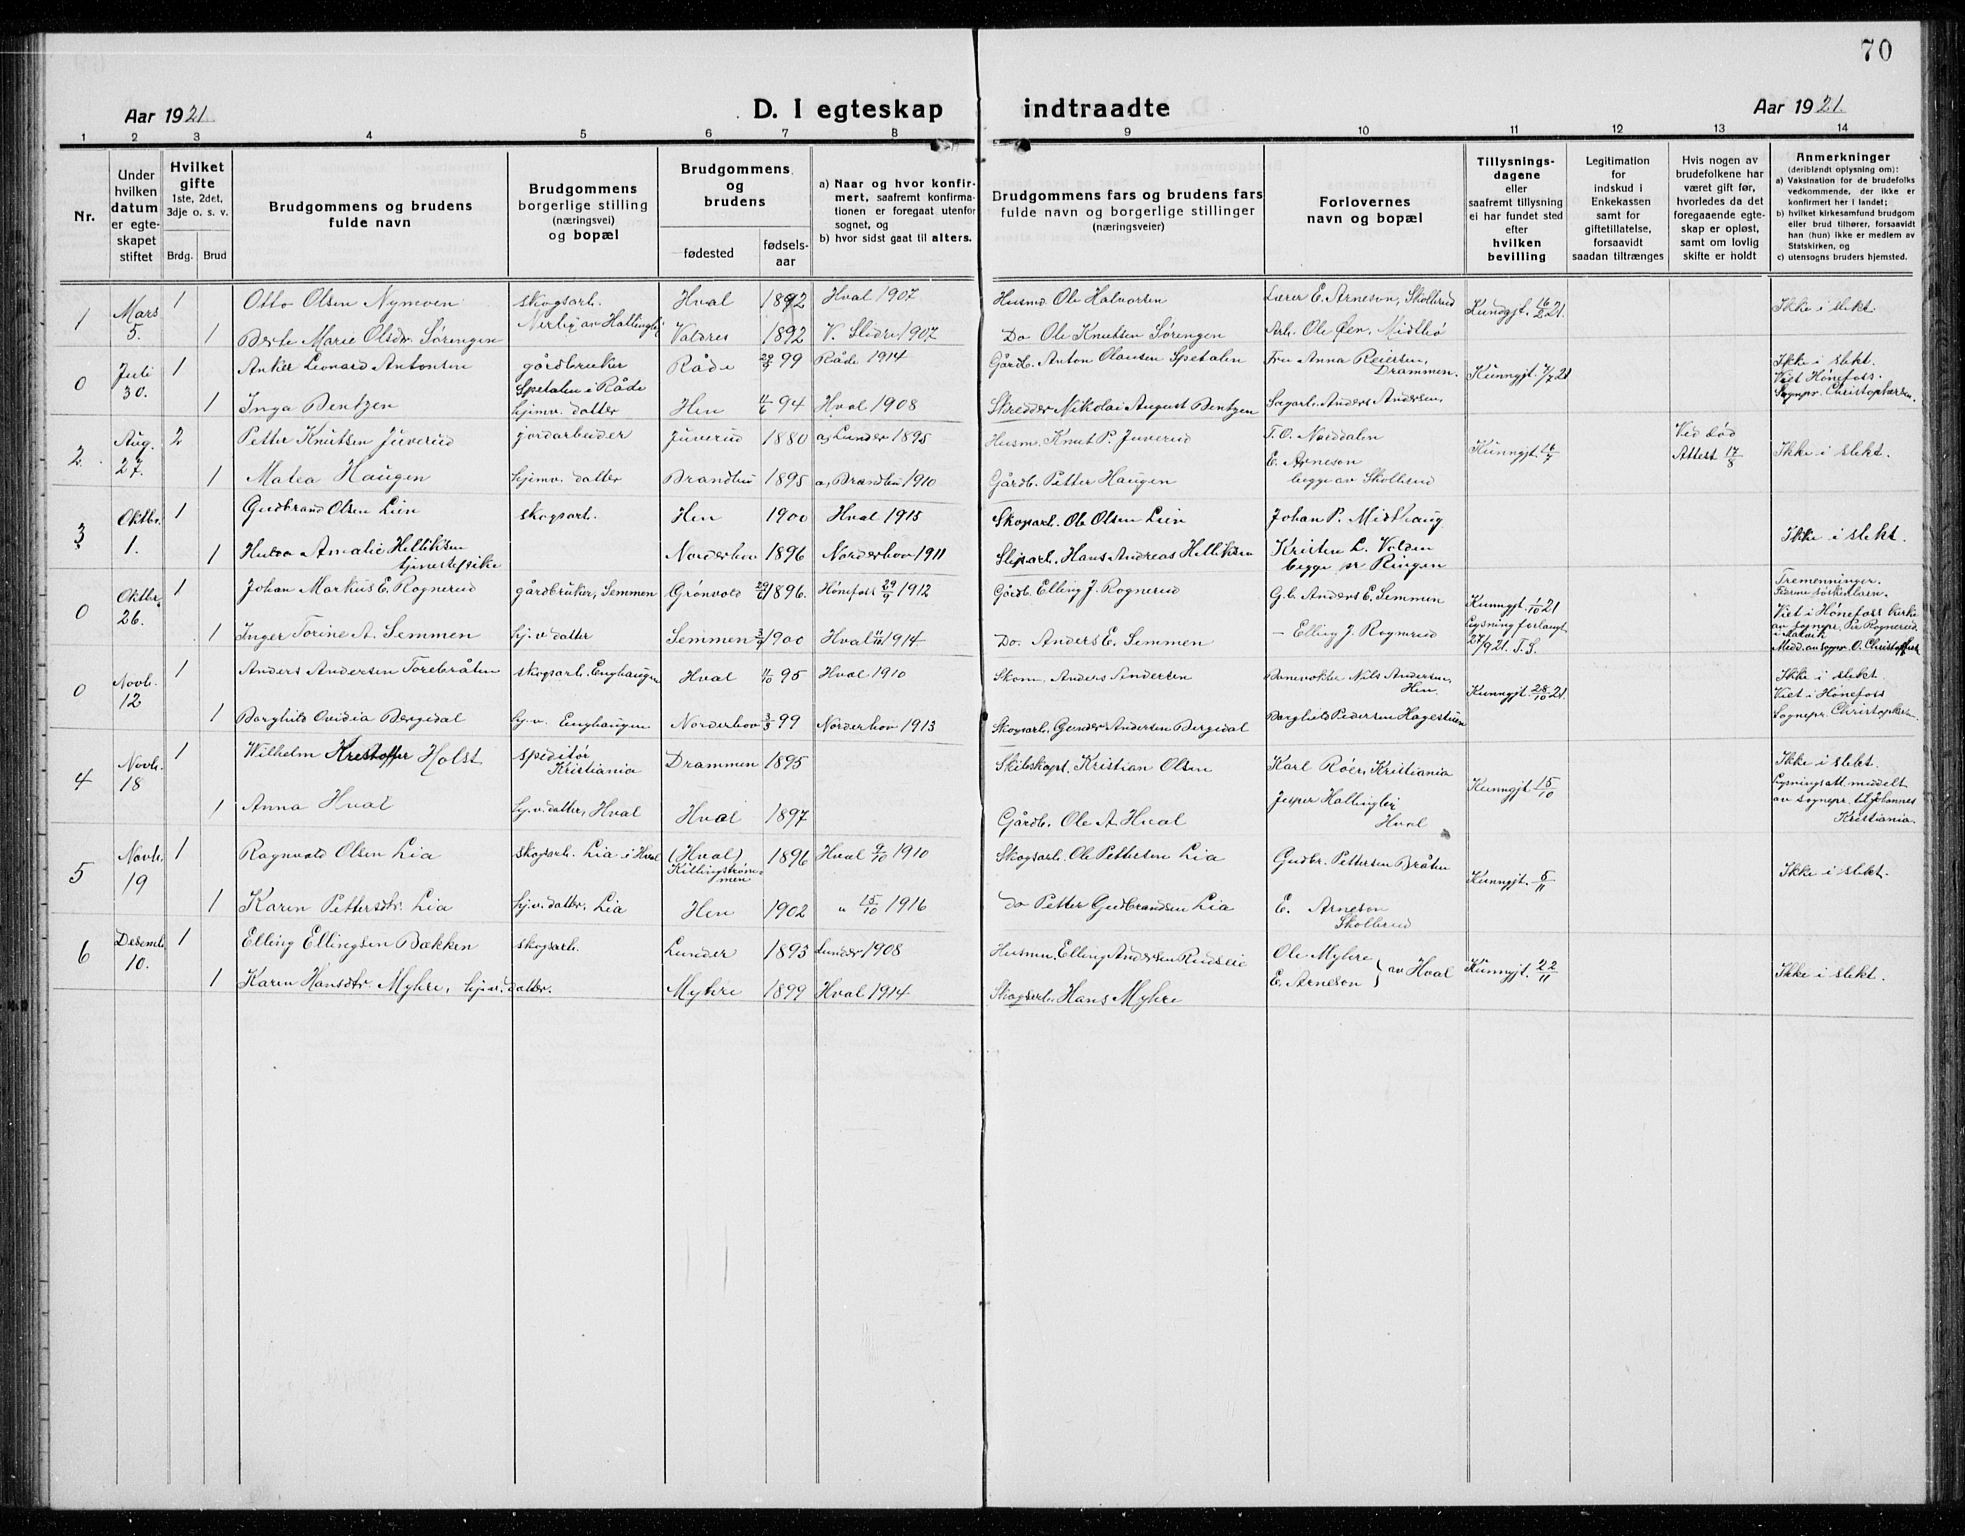 70
Aar 1921. D. I egteskap indtraadte Aar 1921.
1 2 3 4 5 6 7 8 9 10 11 12 13 14
Nr.
Under hvilken datum er egteskapet stiftet
Hvilket gifte 1ste, 2det, 3dje o. s. v.
Brdg. Brud
Brudgommens og brudens fulde navn
Brudgommens borgerlige stilling (næringsvei) og bopæl
Brudgommens og brudens
fødested fødsels-aar
a) Naar og hvor konfirmert, saafremt konfirmationen er foregaat utenfor sognet, og
b) hvor sidst gaat til alters.
Brudgommens fars og brudens fars fulde navn og borgerlige stillinger (næringsveier)
Forlovernes navn og bopæl
Tillysningsdagene eller saafremt tillysning ei har fundet sted efter hvilken bevilling
Legitimation for indskud i Enkekassen samt for giftetillatelse, forsaavidt saadan tiltrænges
Hvis nogen av brudefolkene har været gift før, hvorledes da det foregaaende egteskap er opløst, samt om lovlig skifte er holdt
Anmerkninger
(deriblandt oplysning om):
a) Vaksination for de brudefolks vedkommende, der ikke er konfirmert her i landet;
b) hvilket kirkesamfund brudgom eller brud tilhører, forsaavidt han (hun) ikke er medlem av Statskirken, og
c) utensogns bruders hjemsted.
1 Mars 5. 1 Otto Olsen Nymoen skogsarb. Hval 1892 Hval 1907 Husmd Ole Halvorsen Lærer E. Arneson, Skollerud Kundgjt. 16/2 21. Ikke i slekt.
1 Berte Marie Olsdr. Sörengen Valdres 1892 V. Slidre 1907 Do Ole Knutsen Sørengen Arb. Ole Øen, Midtbø
0 Juli 30. 1 Anker Leonard Antonsen gårdbruker Spetalen i Råde Råde 99 Råde 1914 Gårdb. Anton Olausen Spetalen Fru Anna Reiersen, Drammen. Kunngjt. 7/7 21 Ikke i slekt. Viet Hönefoss. Sognepr. Christophersen.
1 Inga Bentzen hjemv. datter Hen 11/6 94 Hval 1908 Skredder Nikolai August Bentzen Sagarb. Anders Andersen,
2. Aug. 27. 2 Petter Knutsen Juverud jordarbeider Juverud 1880 a) Lunder 1895 Husm. Knut P. Juverud T. O. Norddalen Kunngjt. Ved død Attest 17/8 Ikke i slekt.
1 Matea Haugen hjemv. datter Brandbu 1895 a) Brandbu 1910 Gårdb. Petter Haugen E. Arneson begge av Skollerud
3 Oktbr. 1. 1 Gudbrand Olsen Lien skogsarb. Hen 1900 Hval 1915 Skogsarb. Ole Olsen Lien Johan P. Midthaug Ikke i slekt.
1 Hulda Amalie Helliksen tjenestepike Norderhov 1896 Norderhov 1911 Slipsarb. Hans Andreas Helliksen Kristen L. Volden begge pr Ringen
0 Oktbr. 26. 1 Johan Markus E. Rognerud gårdbruker, Semmen Grönvold 1896. Hönefoss 29/9 1912 Gårdb. Elling J. Rognerud G.b. Anders E. Semmen Kunngjt. 1/10 21 Lysning forlangt 27/9 21. T. S. Tremenninger.
Viet i Hönefoss kirke av sognepr. Per Rognerud i Malvik
1 Inger Torine A. Semmen hj. v datter Semmen 1900 Hval 1914 Do. Anders E. Semmen – Elling J. Rognerud
0 Novb. 12 1 Anders Andersen Torebråten skogsarb. Enghaugen Hval 11/10 95 Hval 1910 Skom. Anders Andersen Banevokter Nils Andersen, Hen. Kunngjt. 28/10 21. Ikke i slekt. Viet i Hönefoss Sognepr. Christophersen.
1 Borghild Ovidia Bergedal hj. v. Enghaugen Norderhov 3/3 99 Norderhov 1913 Skogsarb. Gunder Andersen Bergedal Borghild Pedersen Hagestuen
4 Novb. 18 1 Wilhelm Kristoffer Holst speditør Kristiania Drammen 1895 Skibskapt. Kristian Olsen Karl Röer, Kristiania Kunngjt. 15/10 Ikke i slekt. Lysningsatt. meddelt av sognepr. til Johannes Kristiania.
1 Anna Hval hj. v. datter, Hval Hval 1897 Gårdb. Ole A. Hval Jesper Hallingby Hval
5 Novb. 19 1 Ragnvald Olsen Lia skogsarb. Lia i Hval (Hval) Killingströmmen 1896 Hval 9/10 1910 Skogsarb. Ole Pettersen Lia Gudbr. Pettersen Bråten Kunngjt. 5/11 Ikke i slekt.
1 Karen Pettersdtr. Lia hj. v. datter, Lia Hen 1902 " 15/10 1916 Do Petter Gudbrandsen Lia E. Arneson Skollerud
6 Desemb. 10. 1 Elling Ellingsen Bakken skogsarb. Lunder 1893 Lunder 1908 Husmn. Elling Andersen Rudseie Ole Myhre Kunngjt. 22/11 Ikke i slekt.
1 Karen Hansdtr. Myhre, hj. v. datter. Myhre 1899 Hval 1914 Skogsarb. Hans Myhre E. Arneson } av Hval